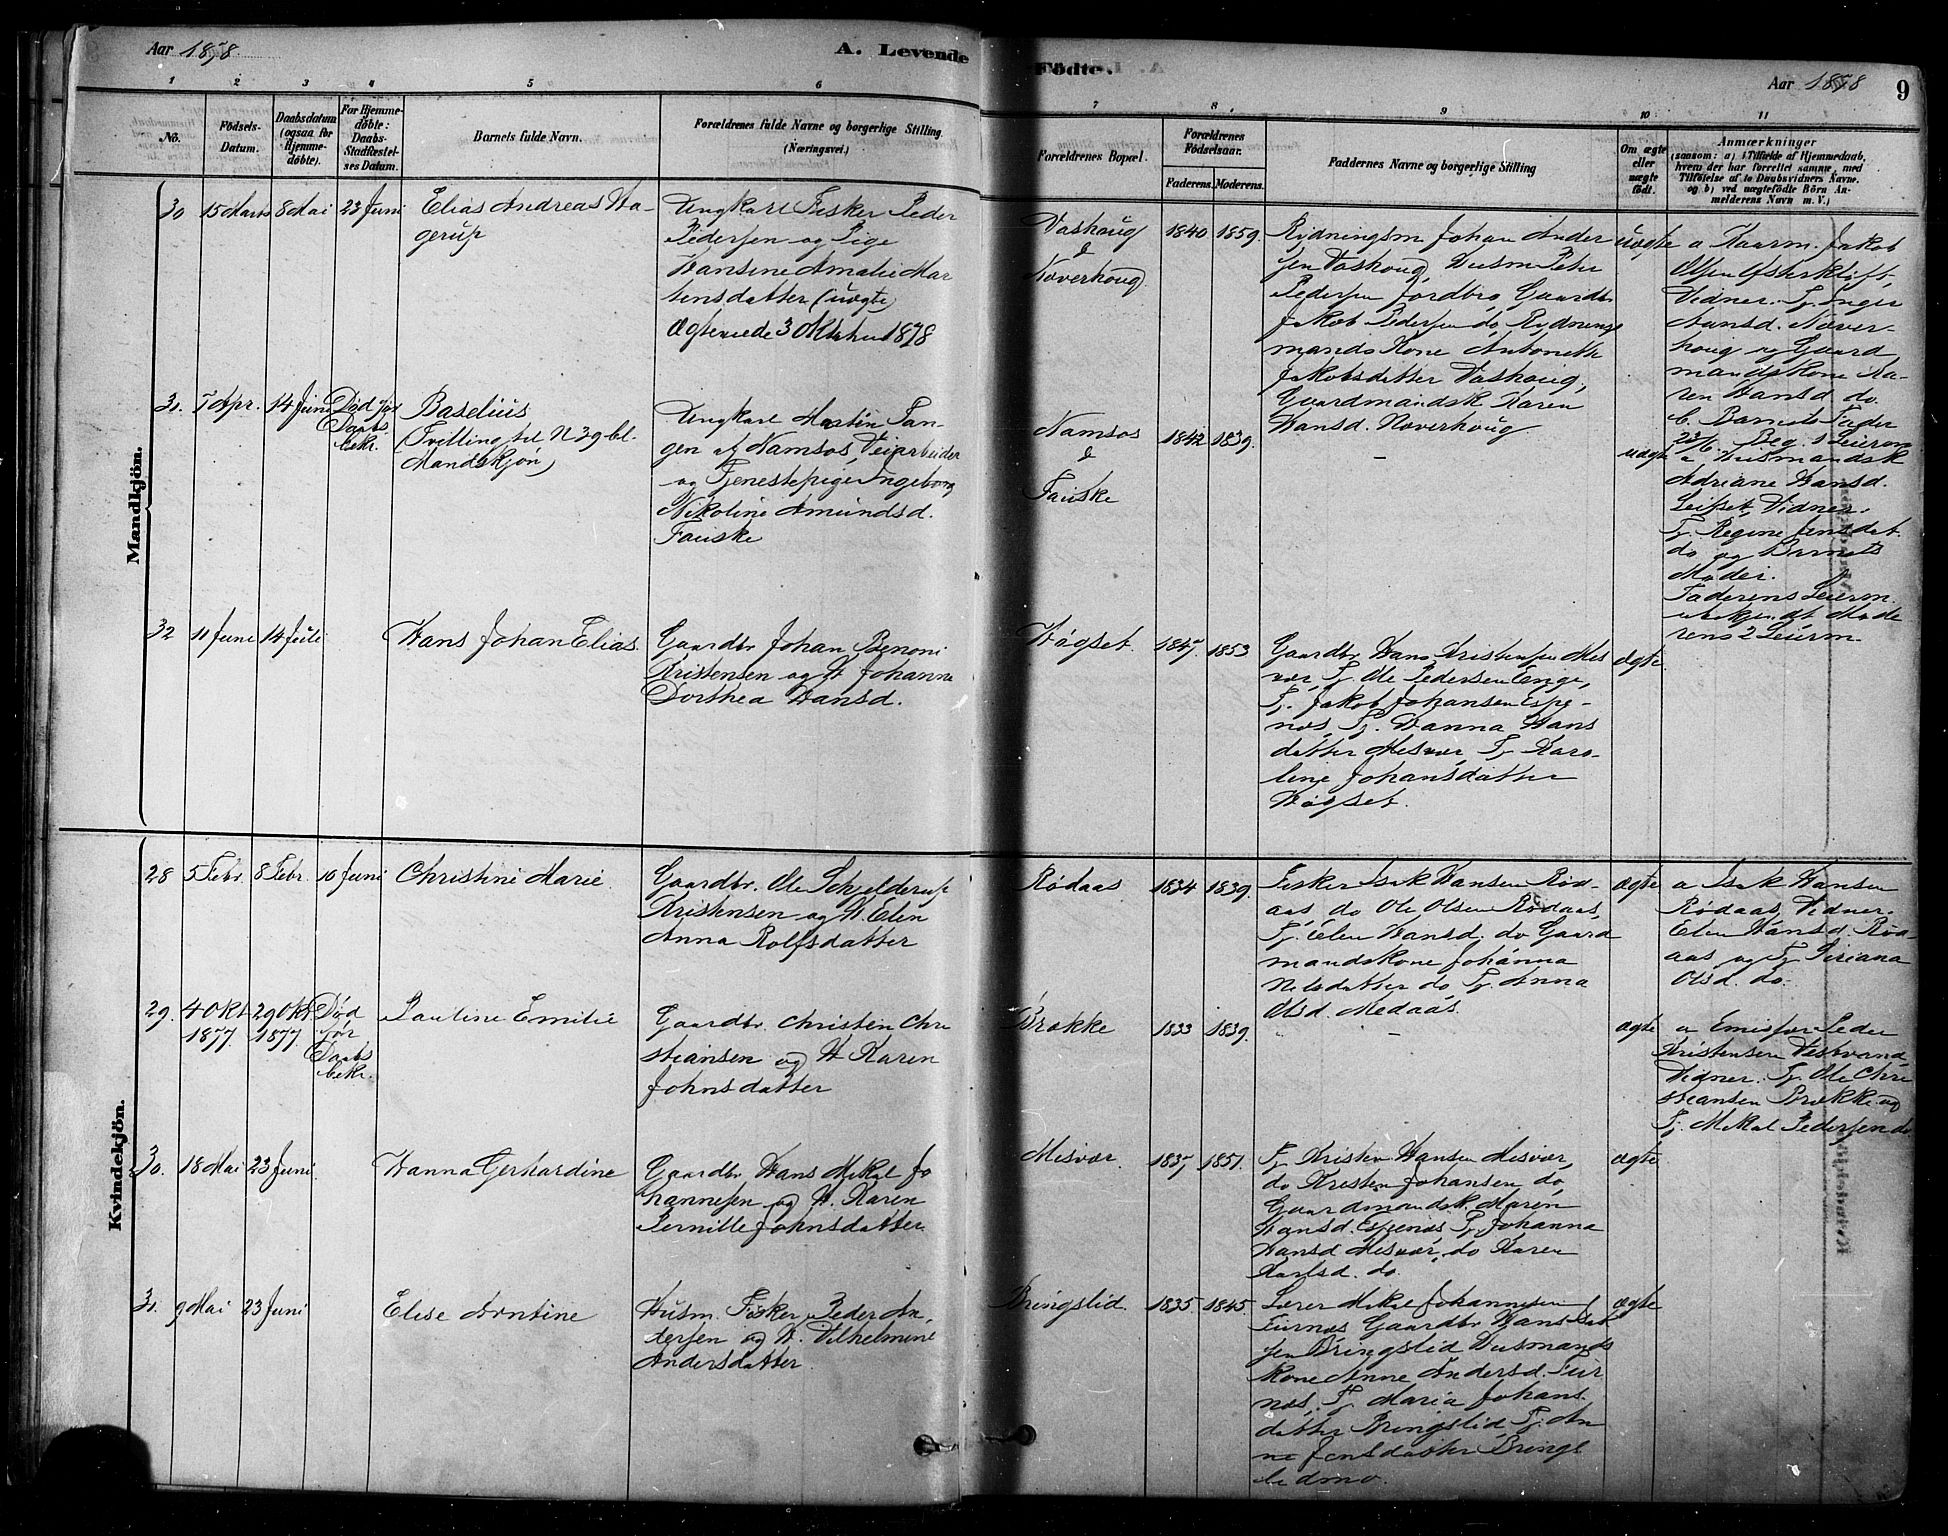 Aar 1878.
A. Levende
Födte.
Aar 1878
9
1
2
3
4
5
6
7
8.
9
10
11
No.
Födsels-
Datum.
Daabsdatum
(ogsaa for
Hjemme-
döbte).
For Hjemme-
döbte:
Daabs-
Stadfæstel-
ses Datum.
Barnets fulde Navn.
Forældrenes fulde Navne og borgerlige Stilling.
(Næringsvei.)
Forældrenes Bopæl.
Forældrenes
Födselsaar.
Faderens.
Moderens.
Faddernes Navne og borgerlige Stilling
Om ægte
eller
uægte
födt.
Anmærkninger
(saasom: a) i Tilfælde af Hjemmedaab,
hvem der har forrettet samme, med
Tilföielse af to Daabsvidners Navne.
og b) ved uægtefödte Börn An-
melderens Navn m. V.)
Mandkjön.
30
15 Marts
8 Mai
23 Juni
Elias Andreas Ha-
gerup
Ungkarl Fisker Peder
Pedersen og Pige
Hansine Amalie Mar
tensdatter (uægte)
Ægteviede 3 Oktober 1878
Vashoug
&
Noverhoug
1840
1859.
Rydningsm. Johan Ander
sen Vashoug, Husm Peter
Pedersen Jordbro, Gaardbr
Jakob Pedersen do, Rydnings
mands Kone Antonette
Jakobsdatter Vashoug,
Gaardmandsk Karen
Hansd. Noverhoug.
uægte
a Kaarm. Jakob
Olsen
Vidner: Tj. Inger
Hansd. Nover-
houg og Gaard
mandskone Ka-
ren Hansd do.
b. Barnets Fader
31.
5 Apr.
14 Juni
Død før
Daabs
bekr.
Baselius
(Tvilling til N 39 bl.
Mandskjøn)
Ungkarl Martin Tan-
gen af Namsos, Veiarbeider
og Tjenestepige Ingeborg
Nikoline Amundsd.
Fauske
Namsos
&
Fauske
1842
1839.
–
uægte
a Husmandsk
Adriane Hansd.
Leifset, Vidner.
Tj. Regine Jensdat.
do og Barnets
Moder.
Faderens Leierm.
ubekjendt Mode
rens 2 Leierm.
32
11 Juni
14 Juli
Hans Johan Elias.
Gaardbr Johan Benoni
Kristensen og H Johanne
Dorthea Hansd.
Høgset.
1847.
1853
Gaardbr. Hans Kristensen Mis
vær, Tj. Ole Pedersen Enge,
Tj. Jakob Johansen Espe-
næs, Tj. Hanna Hans
datter Misvær, Tj Karo-
line Johansdatter
Høgset.
ægte
Kvindekjön.
28
5 Febr.
8 Febr.
10 Juni
Christine Marie.
Gaardbr. Ole Schjelderup
Kristensen og H. Elen
Anna Rolfsdatter
Rødaas
1834
1839.
Fisker Isak Hansen Rød-
aas, do Ole Olsen Rødaas,
Tj. Elen Hansd. do Gaard
mandskone Johanna
Nilsdatter do Tj. Anna
Olsd. Medaas.
ægte
a Isak Hansen
Rødaas, Vidner.
Elen Hansd. Rød-
aas og Tj Siriana
Olsd. do.
29.
4 Okt
1877.
29 Okt
1877.
Død
før
Daabs
bekr.
Pauline Emilie
Gaardbr. Christen Chri
stiansen og H Karen
Johnsdatter
Brække
1833
1839.
–
ægte
a Peder
Kristensen Vestvand,
Vidner: Tj. Ole Chri
stiansen Brække og
Tj. Mikal Pedersen do
30.
18 Mai
23 Juni.
Hanna Gerhardine
Gaardbr. Hans Mikal Jo
hannesen og H. Karen
Pernille Johnsdatter.
Misvær.
1837
1851.
Tj Kristen Hansen Misvær,
do Kristen Johansen do,
Gaardmandsk. Maren
Hansd. Espenæs Tj. Johanna
Hansd Misvær, do Karen
Karlsd. do.
ægte
31.
9 Mai
23 Juni
Elise Arntine
Husm. Fisker Peder An,
dersen og H. Vilhelmine
Andersdatter.
Bringslid.
1835.
1845.
Lærer Mikal Johannesen
Furnæs Gaardbr Hans
sen Bringslid Husmands
kone Anne Andersd. Fur
næs, Tj. Maria Johans
datter Bringslid, Tj. An
na Jensdatter Brings
lidmo.
ægte